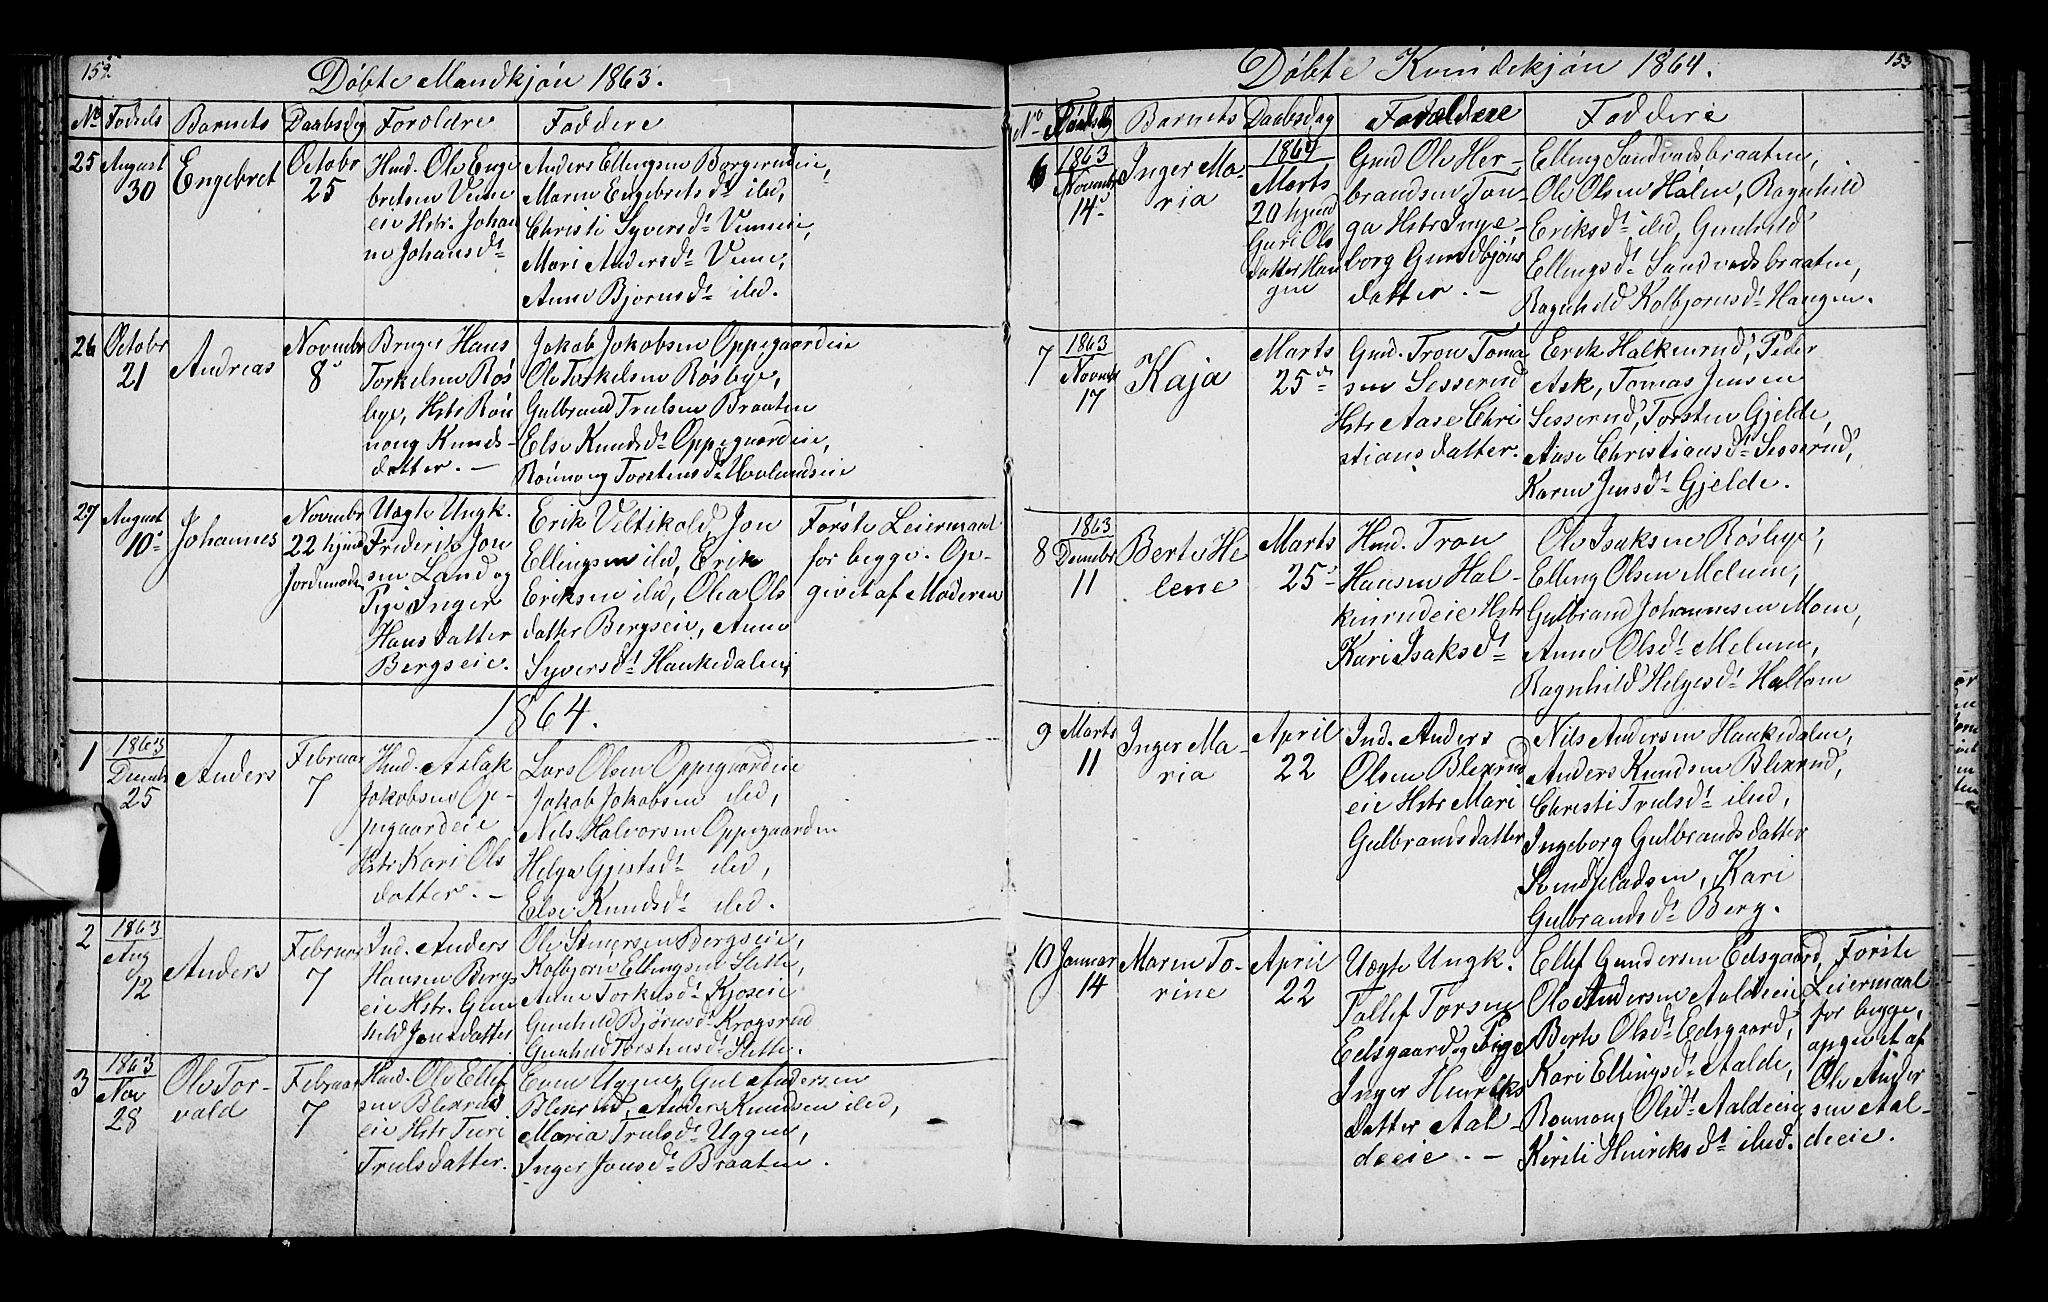 152.
Döbte Mandkjön 1863.
No Fødsels Barnets Daabsdag Foroldre Faddere
25 August 30 Engebret Octobr 25
Hmd. Ole Enge
bretsen Veme
eie Hstr. Johan
ne Johansdr
Anders Ellingsen Borgerudeie,
Maren Engebretsdr ibd,
Christi Syversdr Vemeie,
Mari Andersdr Veme,
Anne Bjornsdr ibd.
26 Octobr 21 Andreas Novembr 8de
Bruger Hans
Torkelsen Rös
bye, Hstr Rön
noug Knuds-
datter. -
Jakob Jokobsen Oppegaardeie
Ole Torkelsen Rösbye,
Gulbrand Trulsen Braaten
Else Knudsdr Oppegaardeie,
Rönnoug Torstensdr Hovlandseie
27 August 10de Johannes Novembr 22 hjmd Jordemoder
Uægte Ungk.
Frederik Jon
sen Land og
Pige Inger
Hansdatter
Bergseie.
Erik Veltikold, Jon
Ellingsen ibd, Erik
Eriksen ibd, Olea Ols
datter Bergseie, Anne
Syversdr Haukedalen,
Förste Leiermaal
for begge. Op-
givet af Moderen
1864.
1 1863 Decembr 25 Anders Februar 7
Hmd. Aslak
Jokobsen Op-
pegaardeie
Hstr Kari Ols
datter. -
Lars Olsen Oppegaardeie
Jakob Jokobsen ibd,
Nils Halvorsen Oppegaarden
Helga Gjestsdr ibd,
Else Knudsdr ibd.
2 1863 Aug 12 Anders Februar 7
Ind. Anders
Hansen Bergs
eie Hstr. Gun
hild Jonsdatter
Ole Simersen Bergseie,
Kolbjörn Ellingsen Slette,
Anne Torkelsdr Kjoseie
Gunhild Björnsdr Krogsrud
Gunhild Torstensdr Slette.
3 1863 Nov 28 Ole Tor-
vald Februar 7
Hmd. Ole Ellef
sen Blexrud
eie Hstr Turi
Trulsdatter.
Even Uggen, Gul Andersen
Blexrud, Anders Knudsen ibd,
Maria Trulsdr Uggen,
Inger Jonsdr Braaten.
153
Döbte Kvindekjön 1864.
No Fødselsdag Barnets Daabsdag Forældere Faddere
6 1863 Novembr 14de Inger Ma-
ria
1864
Marts
20 hjmd
Guri Ols
datter Hau
gen
Gmd Ole Her-
brandsen Ton-
ga Hstr Inge-
borg Gundbjöns
datter. -
Elling Sandvadsbraaten,
Ole Olsen Halen, Ragnhild
Eriksdr ibd, Gunhild
Ellingsdr Sandvadsbraaten,
Ragnhild Kolbjornsdr Haugen.
7 1863 Novembr 17 Kaja Marts 25de
Gmd. Tron Toma
sen Sesserud
Hstr Aase Chri
stiansdatter.
Eerik Halkinrud, Peder
Ask, Tomas Jensen
Sesserud, Torsten Gjelde,
Aase Christiansdr Sesserud,
Karen Jensdr Gjelde.
8 1863 Decembr 11 Berte He
lene Marts 25de
Hmd. Tron
Hansen Hal-
kinrudeie Hstr
Kari Isaksdr
Ole Isaksen Rösbye,
Elling Olsen Melum,
Gulbrand Johannesen Mom,
Anne Olsdr Melum,
Ragnhild Helgesdr Hallom
9 Marts 11 Inger Ma-
ria April 22
Ind. Anders
Olsen Blexrud
eie Hstr Mari
Gulbrandsdatter
Nils Andersen Haukedalen,
Anders Knudsen Blexrud,
Christi Trulsdr ibd,
Ingeborg Gulbrandsdatter
Svendpladsen, Kari
Gulbrandsdr Berg.
10 Januar 14 Maren To-
rine April 22
Uægte Ungk.
Tollef Torsen
Edsgaard og Pige
Inger Henriks
datter Aal-
deeie. -
Ellef Gundersen Edsgaard,
Ole Andersen Aaldeeie
Berte Olsdr Edsgaard,
Kari Ellingsdr Aalde,
Ronnoug Olsdr Aaldeeie
Kirsti Henriksdr ibd.
Förste
Leiermaal
for begge,
opgivet af
Ole Ander
sen Aal-
deeie.